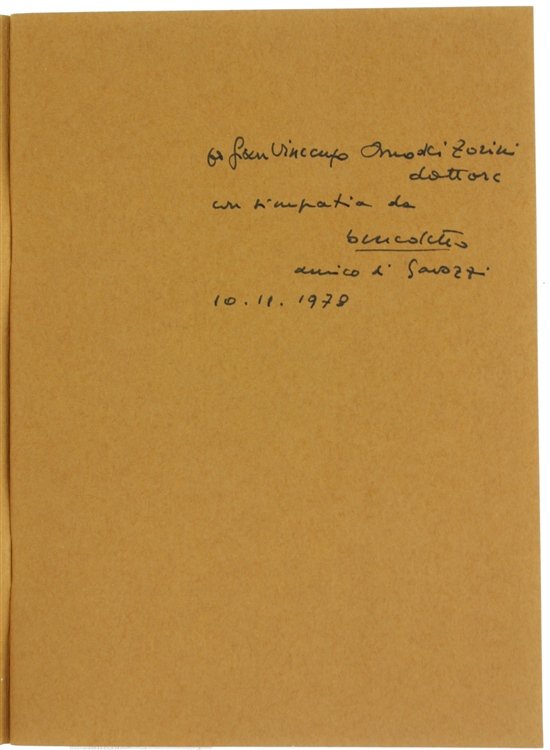 a Gian Vincenzo Omodei Zorini
dottore
con simpatia da
benedetto
amico di Gavozzi
10.11.1978